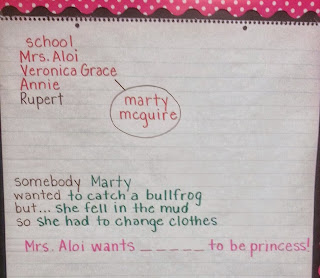 school
Mrs. Aloi
Veronica Grace
Annie
Rupert
marty
mcguire
somebody Marty
wanted to catch a bullfrog
but... she fell in the mud
so she had to change clothes
Mrs. Aloi wants _ _ _ _ _ _ to be princess!